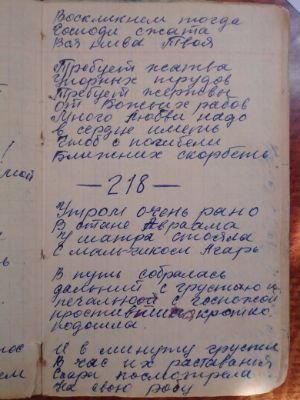 Воскликнем тогда
Господи сжата
Вся нива Твоя
Требует жатва
Упорных трудов
Требует жертвы
От Божьих рабов
Много любви надо
в сердце иметь
Чтоб с погибели
Ближних скорбеть
—218—
Утром очень рано
В стане Авраама
У шатра стояла
С мальчиком Агарь
В путь собралась
дальний с грустью и
печальной с госпожой
простившись кротко
подошла
И в минуту грусти
В час их раставания
Сара посмотрела
на свою рабу
мой